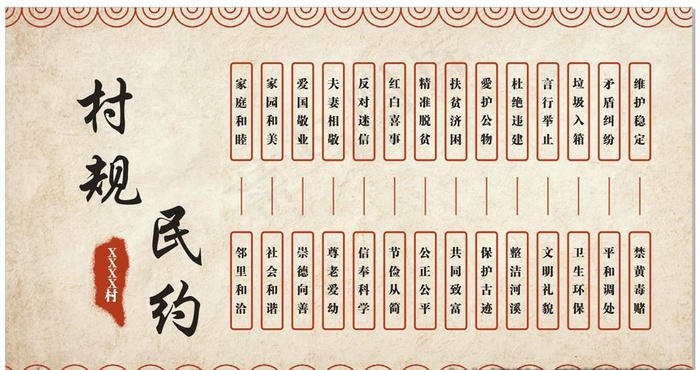 村规
民约
XXXX村
家庭和睦
家园和美
爱国敬业
夫妻相敬
反对迷信
红白喜事
精准脱贫
扶贫济困
爱护公物
杜绝违建
言行举止
垃圾入箱
矛盾纠纷
维护稳定
邻里和洽
社会和谐
崇德向善
尊老爱幼
信奉科学
节俭从简
公正公平
共同致富
保护古迹
整洁河溪
文明礼貌
卫生环保
平和调处
禁黄毒赌